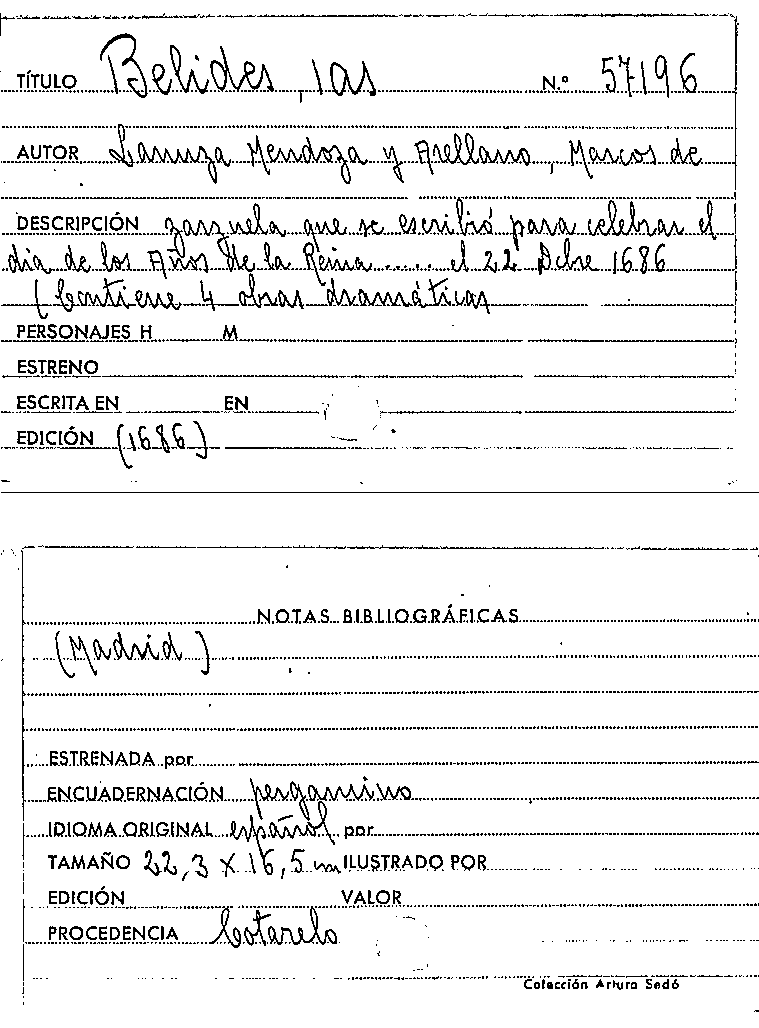 TÍTULO Belides, las N.º 57196
AUTOR Lanuza Mendoza y Arellano, Marcos de
DESCRIPCIÓN zarzuela que se escribió para celebrar el
dia de los Años de la Reina ..... el 22 Dcbre 1686
(Contiene 4 obras dramáticas
PERSONAJES H M
ESTRENO
ESCRITA EN EN
EDICIÓN (1686)
NOTAS BIBLIOGRÁFICAS
(Madrid)
ESTRENADA por
ENCUADERNACIÓN pergamino
IDIOMA ORIGINAL español por
TAMAÑO 22,3 x 16,5 cm ILUSTRADO POR
EDICIÓN VALOR
PROCEDENCIA Cotarelo
Colección Arturo Sedó